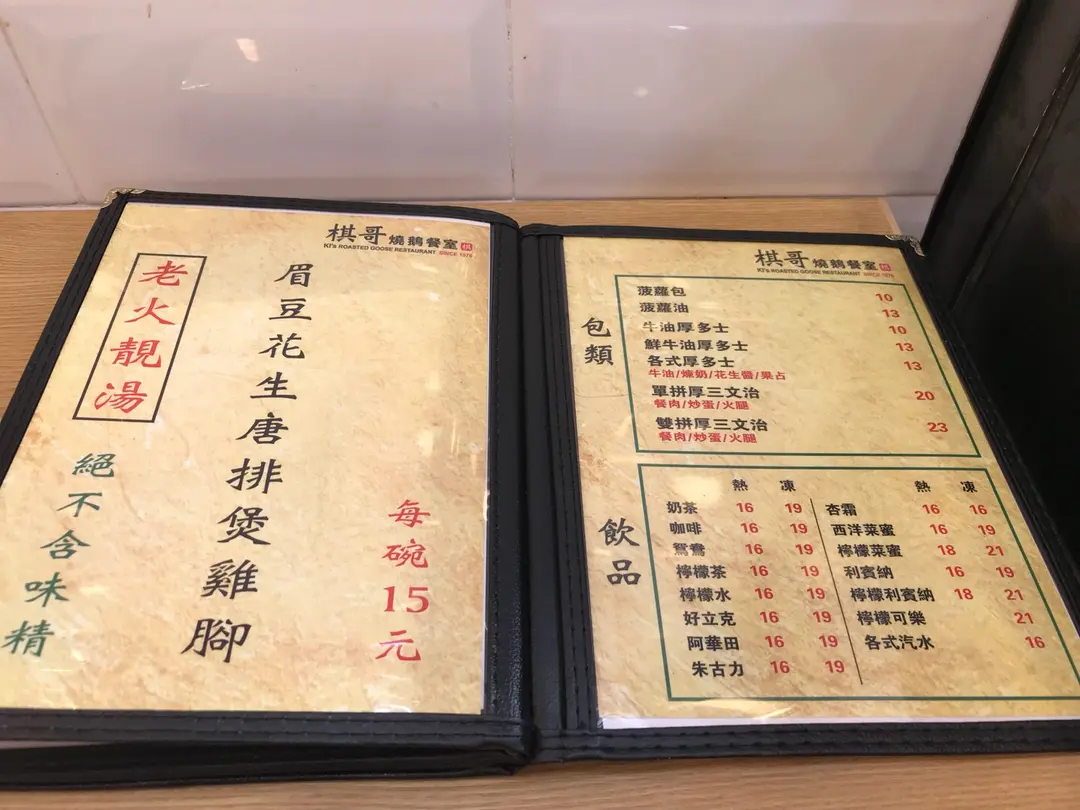 棋哥燒鵝餐室 棋
KI's ROASTED GOOSE RESTAURANT SINCE 1976
老火靚湯
眉豆花生唐排煲雞腳
絕不含味精
每碗15元
棋哥燒鵝餐室 棋
KI's ROASTED GOOSE RESTAURANT SINCE 1976
包類
菠蘿包 10
菠蘿油 13
牛油厚多士 10
鮮牛油厚多士 13
各式厚多士 13
牛油/煉奶/花生醬/果占
單拼厚三文治 20
餐肉/炒蛋/火腿
雙拼厚三文治 23
餐肉/炒蛋/火腿
飲品
熱 凍
奶茶 16 19
咖啡 16 19
鴛鴦 16 19
檸檬茶 16 19
檸檬水 16 19
好立克 16 19
阿華田 16 19
朱古力 16 19
熱 凍
杏霜 16 16
西洋菜蜜 16 19
檸檬菜蜜 18 21
利賓納 16 19
檸檬利賓納 18 21
檸檬可樂 21
各式汽水 16